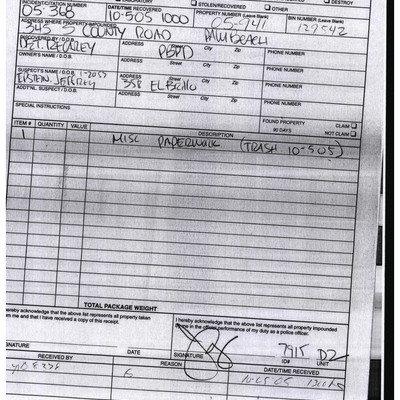 OTHER
DESTROY
STOLEN/RECOVERED
INCIDENT/CITATION NUMBER DATE/TIME RECOVERED PROPERTY NUMBER (Leave Blank) BIN NUMBER (Leave Blank)
05-368 10-505 1000
ADDRESS WHERE PROPERTY IMPOUNDED
345 S COUNTY ROAD PALM BEACH
DISCOVERED BY / D.O.B. ADDRESS City Zip PHONE NUMBER
DET. RECAREY PBPD
OWNER'S NAME / D.O.B. ADDRESS Street City Zip PHONE NUMBER
SUSPECT'S NAME / D.O.B. ADDRESS Street City Zip PHONE NUMBER
EPSTEIN, JEFFREY 1-2053 358 EL BRILLO
ADDT'NL SUSPECT / D.O.B. ADDRESS Street City Zip PHONE NUMBER
SPECIAL INSTRUCTIONS FOUND PROPERTY CLAIM
90 DAYS NOT CLAIM
ITEM # QUANTITY VALUE DESCRIPTION
1 MISC PAPERWORK (TRASH 10-505)
TOTAL PACKAGE WEIGHT
hereby acknowledge that the above list represents all property taken
from me and that I have received a copy of this receipt.
I hereby acknowledge that the above list represents all property impounded
in the official performance of my duty as a police officer.
7915 D2
SIGNATURE DATE SIGNATURE ID# UNIT
RECEIVED BY REASON DATE/TIME RECEIVED